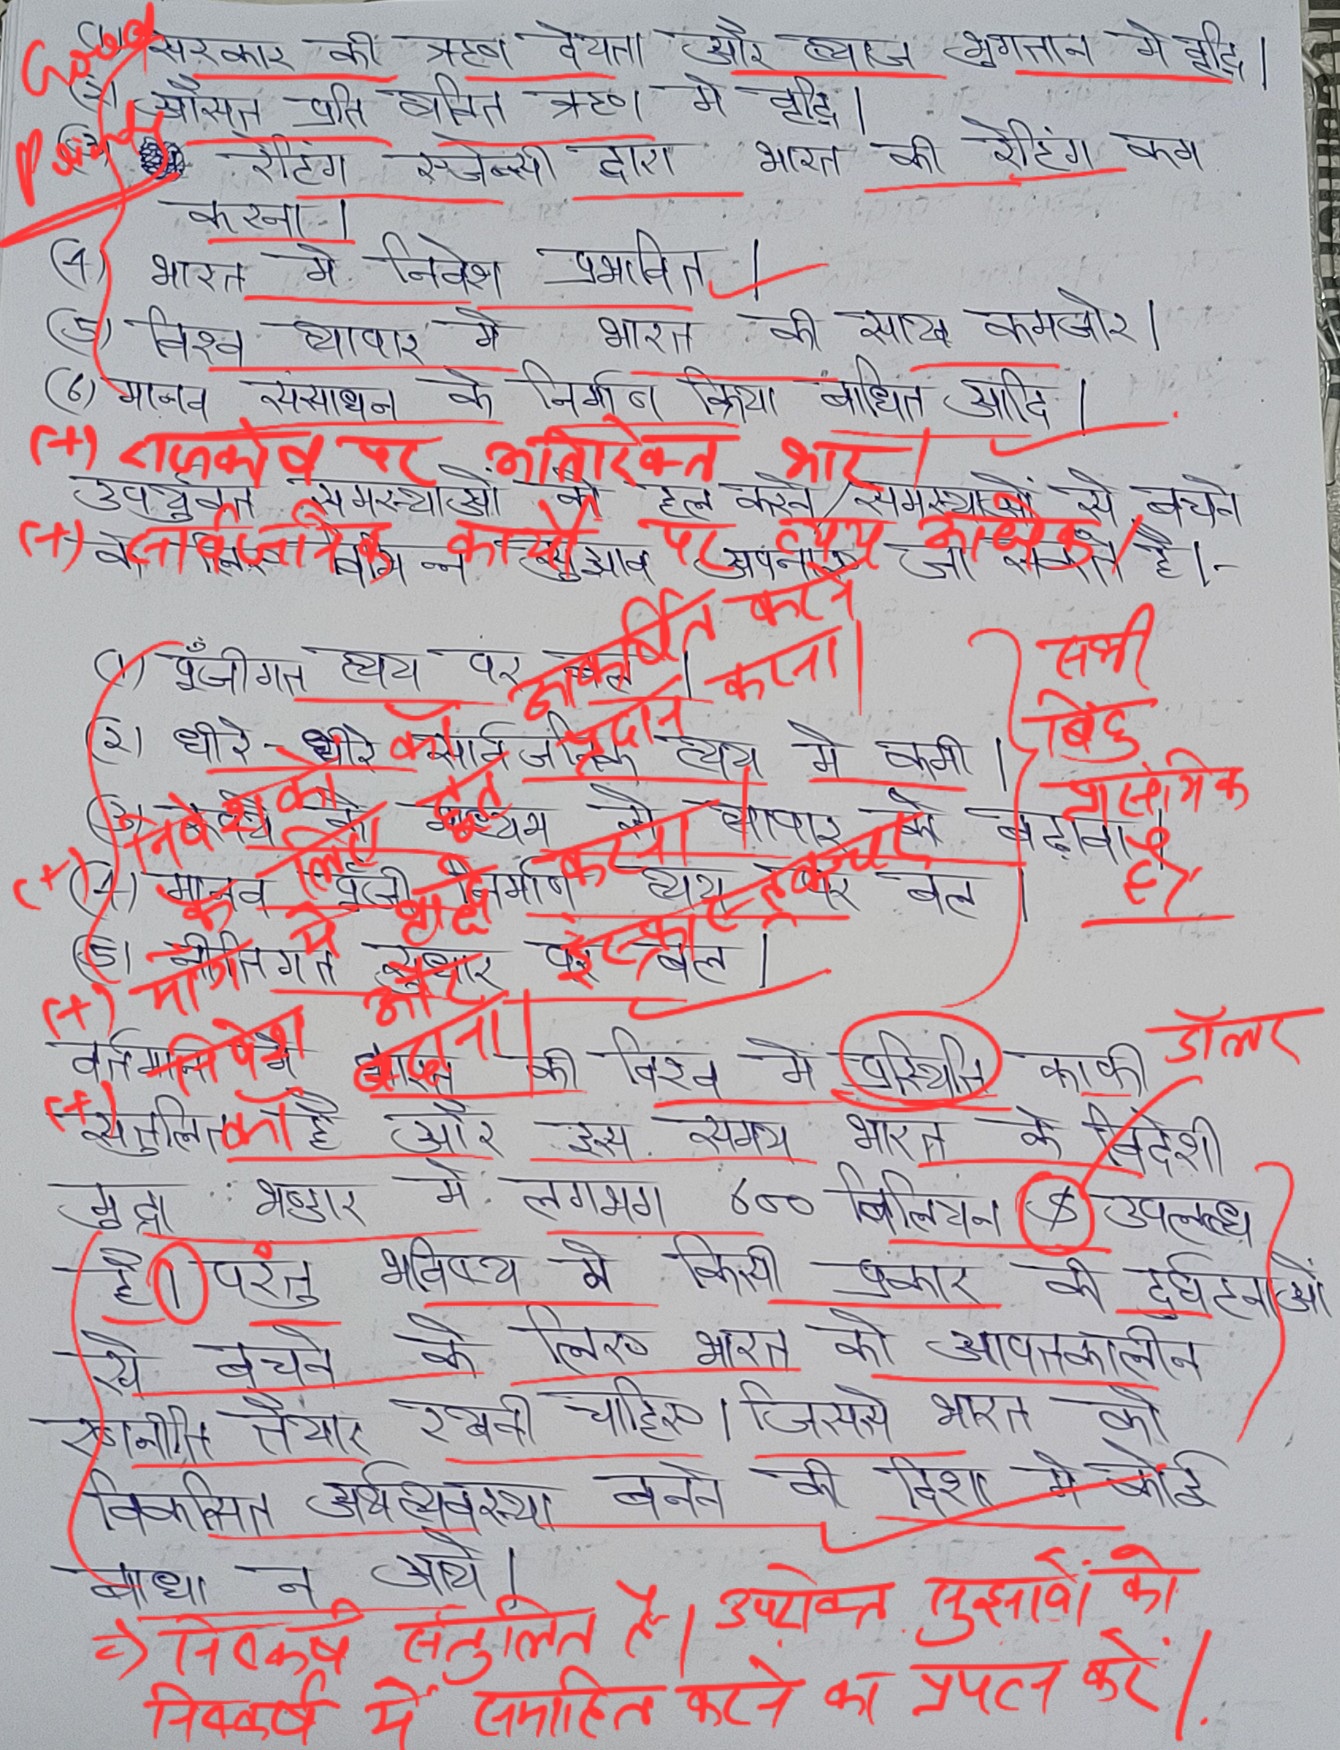 Good Points
(1) सरकार की ऋण देयता और ब्याज भुगतान मे वृद्धि।
(2) औसत प्रति व्यक्ति ऋण मे वृद्धि।
(3) रेटिंग एजेन्सी द्वारा भारत की रेटिंग कम
करना।
(4) भारत मे निवेश प्रभावित।
(5) विश्व व्यापार मे भारत की साख कमजोर।
(6) मानव संसाधन के निर्माण क्रिया बाधित आदि।
(+) राजकोष पर अतिरिक्त भार।
उपर्युक्त समस्याओं को हल करने/समस्याओं से बचने
(+) सार्वजनिक कार्यों पर व्यय अधिक।
के लिए विभिन्न सुझाव अपनाए जा सकते है।-
(1) पूँजीगत व्यय पर बल।
(2) धीरे-धीरे सार्वजनिक व्यय मे कमी।
(3) के माध्यम से व्यापार को बढ़ावा।
(4) मानव पूँजी निर्माण व्यय पर बल।
(5) नीतिगत सुधार पर बल।
सभी
बिंदु
प्रासंगिक
है।
(+) निवेशकों को आकर्षित करने
के लिए छूट प्रदान करना।
(+) मांग में वृद्धि करना।
(+) निवेश और इंफ्रास्ट्रक्चर
को बढ़ाना।
वर्तमान मे भारत की विश्व मे प्रस्थिति काफी
डॉलर
संतुलित है और इस समय भारत के विदेशी
मुद्रा भण्डार मे लगभग 600 बिलियन $ उपलब्ध
है। परंतु भविष्य मे किसी प्रकार की दुर्घटनाओं
से बचने के लिए भारत को आपतकालीन
रणनीति तैयार रखनी चाहिए। जिससे भारत को
विकसित अर्थव्यवस्था बनने की दिशा मे कोई
बाधा न आये।
=) निष्कर्ष संतुलित है। उपरोक्त सुझावों को
निष्कर्ष में समाहित करने का प्रयत्न करें।